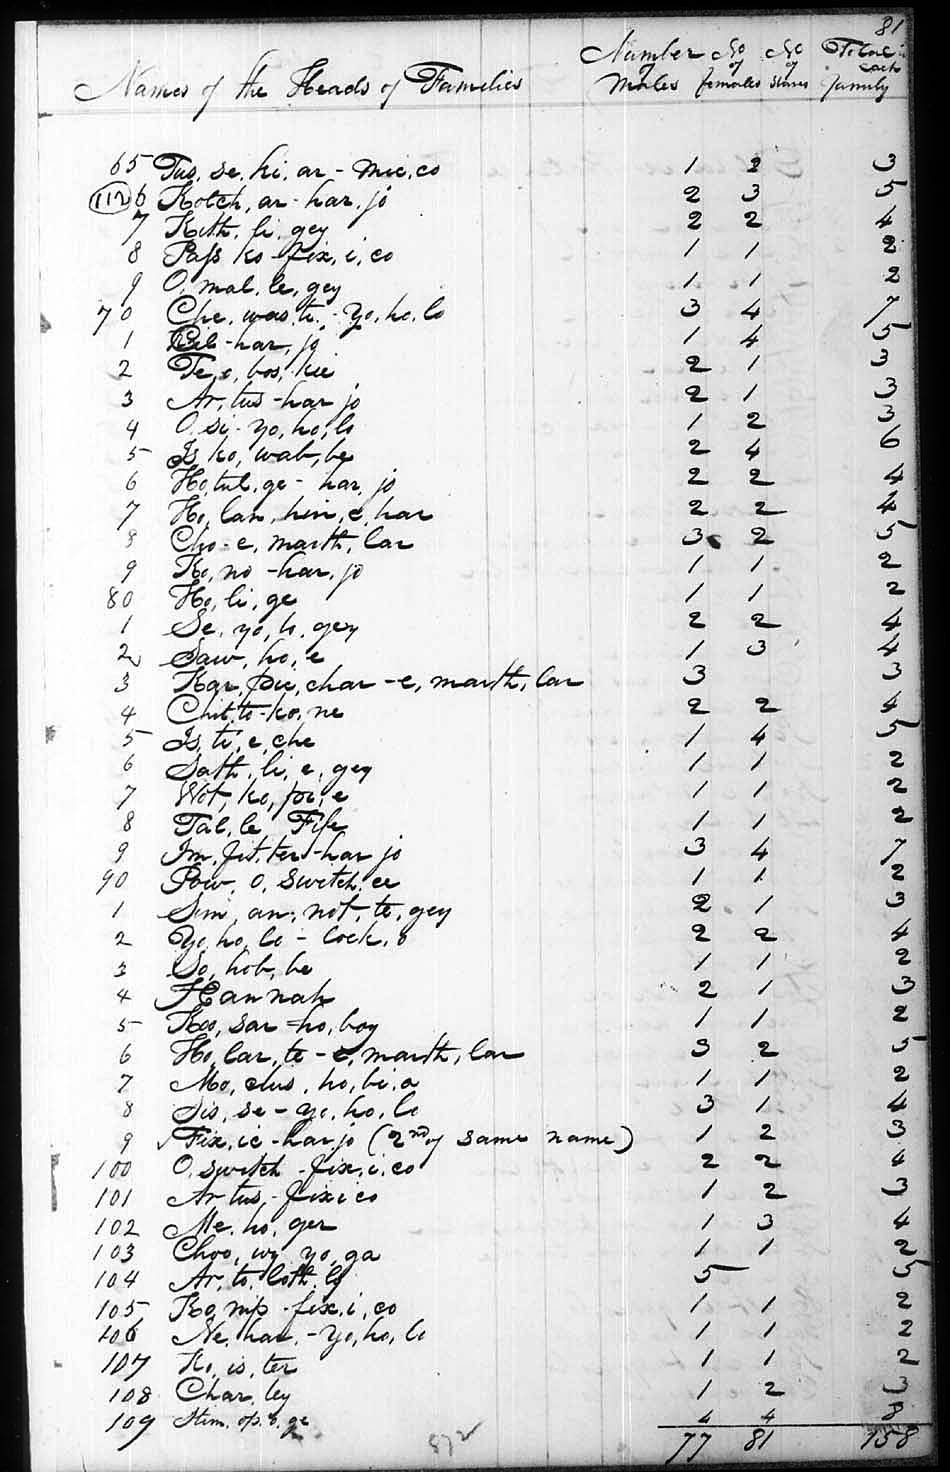 81
Names of the Heads of Families Number of Males No of females No of Slaves Total in each family
65 Tus, se, ki, ar - mic, co 1 2 3
112 6 Kotch, ar - har, jo 2 3 5
7 Kith, li, gey 2 2 4
8 Pass ko - fix, i, co 1 1 2
9 O, mal, le, gey 1 1 2
70 Che, was, te, - Yo, ho, lo 3 4 7
1 -har, jo 1 4 5
2 bos, kee 2 1 3
3 Ar, tus - har jo 2 1 3
4 O, si - yo, ho, lo 1 2 3
5 Is, ko, wab, be 2 4 6
6 Ho, tul, ge - har, jo 2 2 4
7 Ho, lan, hin, e, har 2 2 4
8 Cho - e, marth, lar 3 2 5
9 Ko, no - har, jo 1 1 2
80 Ho, li, ge 1 1 2
1 Se, yo, lo, gey 2 2 4
2 Saw, ho, e 1 3 4
3 Kar, pic, char - e, marth, lar 3 3
4 Chit, to - ko, ne 2 2 4
5 Is, ti, e, che 1 4 5
6 Sath, li, e, gey 1 1 2
7 Wot, ko, joi, e 1 1 2
8 Tal, le Fife 1 1 2
9 Im, fit, ter - har jo 3 4 7
90 Pow, o, switch, ee 1 1 2
1 Sim, an, not, te, gey 2 1 3
2 Yo, ho, lo - lock, o 2 2 4
3 So, hob, be 1 1 2
4 Hannah 2 1 3
5 Koo, sar = ho, boy 1 1 2
6 Ho, lar, te - e, marth, lar 3 2 5
7 Mo, clus, ho, bi, a 1 1 2
8 Sis, se - yo, ho, lo 3 1 4
9 Fix, ic - har jo (2nd of same name) 1 2 3
100 O, switch - fix, i, co 2 2 4
101 Ar tus, - fixico 1 2 3
102 Me, ho, ger 1 3 4
103 Choo, wy, yo, ga 1 1 2
104 Ar, to, loth, ly 5 5
105 Ko, nip - fix, i, co 1 1 2
106 Ne, har, - Yo, ho, lo 1 1 2
107 Ko, is, ter 1 1 2
108 Char, ley 1 2 3
109 Stim, op, o, ge 4 4 8
77 81 158